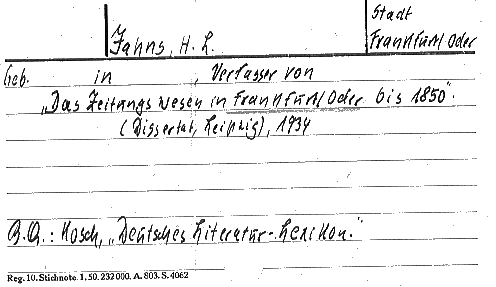 Stadt
Jahns, H. L. Frankfurt/Oder
Geb. in , Verfasser von
„Das Zeitungswesen in Frankfurt/Oder bis 1850".
(Dissertat, Leipzig), 1934
Q.Q.: Kosch, „Deutsches Literatur-Lexikon."
Reg. 10. Stichnote. 1, 50. 232000. A. 803. S. 4062